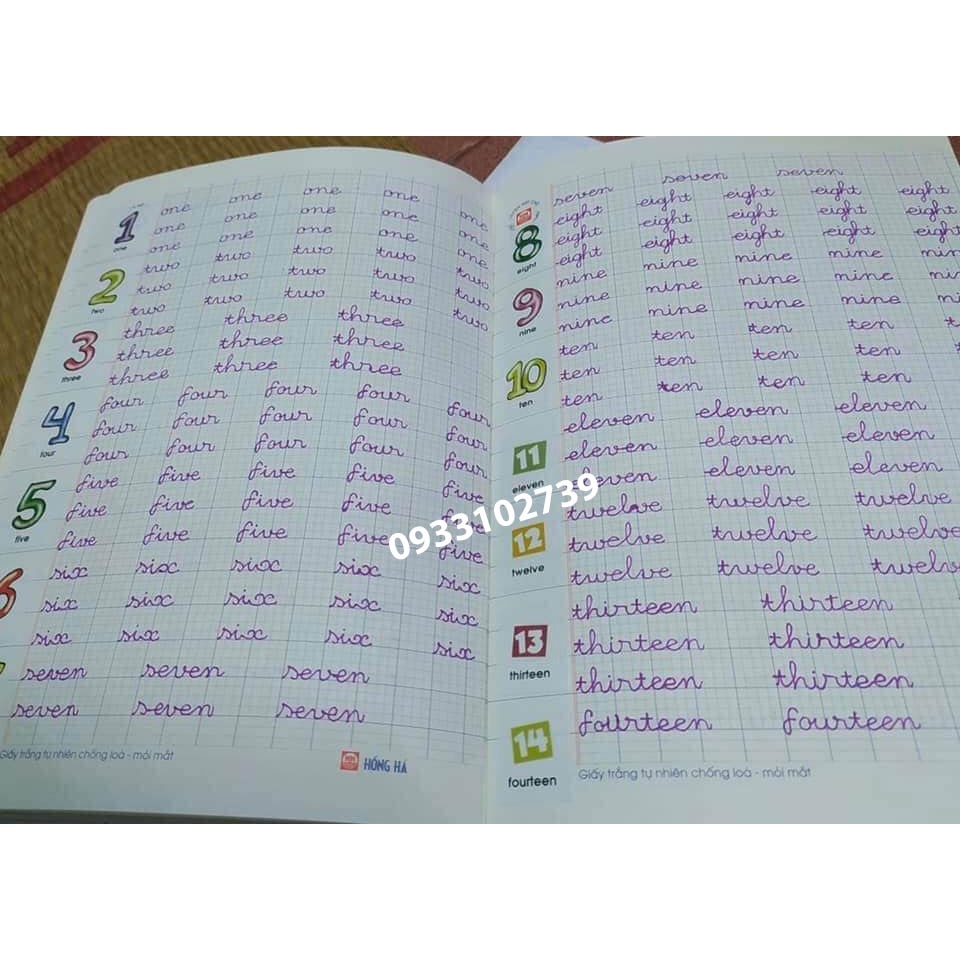 one one one one one
1 one one one one one
one
one one one one one
two two two two two
2 two two two two two
two
two two two two two
three three three
3 three three three
three
three three three
four four four four four
4 four four four four four
four
four four four four four
five five five five five
5 five five five five five
five
five five five five five
six six six six six
6 six six six six six
six six six six six
seven seven seven
seven seven seven
Giấy trắng tự nhiên chống loá - mỏi mắt
HỒNG HÀ
seven seven seven
eight eight eight eight eight
8 eight eight eight eight eight
eight
eight eight eight eight eight
nine nine nine nine nin
9 nine nine nine nine nin
nine
nine nine nine nine ni
ten ten ten ten t
10 ten ten ten ten
ten
ten ten ten ten
eleven eleven eleven
11 eleven eleven eleven
eleven
eleven eleven eleven
twelve twelve twelve
12 twelve twelve twelve
twelve
twelve twelve twelv
thirteen thirteen
13 thirteen thirteen
thirteen
thirteen thirteen
14 fourteen fourteen
fourteen
Giấy trắng tự nhiên chống loá - mỏi mắt
0933102739